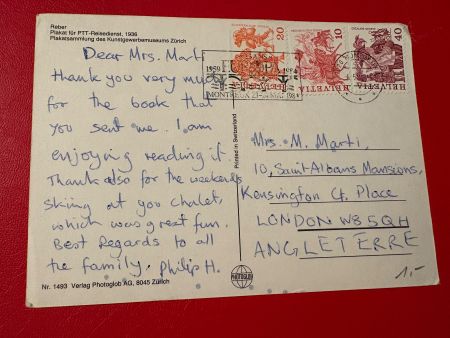 Reber
Plakat für PTT-Reisedienst, 1936
Plakatsammlung des Kunstgewerbemuseums Zürich
Dear Mrs. Marti
Thank you very much
for the book that
you sent me. I am
enjoying reading it.
Thank also for the weekends
skiing at you chalet,
which was great fun.
Best Regards to all
the family. Philip H.
Nr. 1493 Verlag Photoglob AG, 8045 Zürich
Printed in Switzerland
PHOTOGLOB
20
HELVETIA
10
HELVETIA
40
HELVETIA
1959
MONTREUX
Mrs. M. Marti,
10, Saint Albans Mansions,
Kensington Ct. Place
LONDON W8 5QH
ANGLETERRE
1.-